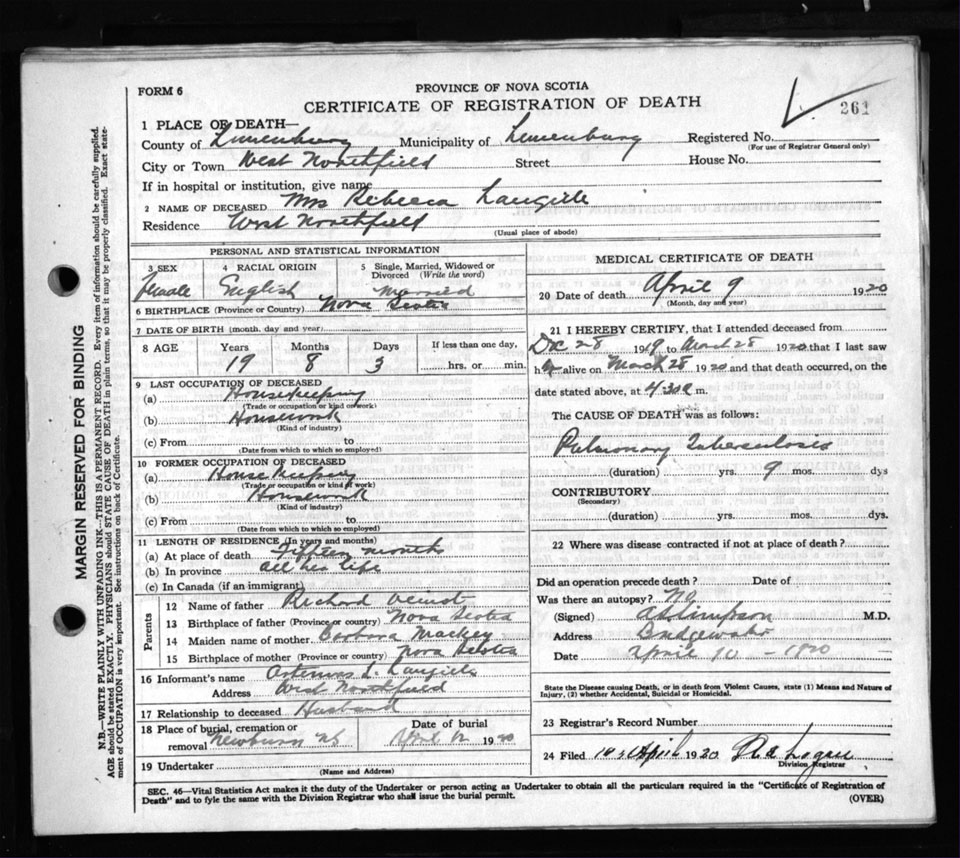 FORM 6
PROVINCE OF NOVA SCOTIA
CERTIFICATE OF REGISTRATION OF DEATH
261
1 PLACE OF DEATH—
County of Lunenburg Municipality of Lunenburg Registered No.
(For use of Registrar General only)
City or Town West Northfield Street House No.
If in hospital or institution, give name
2 NAME OF DECEASED Mrs Rebecca Langille
Residence West Northfield
(Usual place of abode)
PERSONAL AND STATISTICAL INFORMATION
3 SEX 4 RACIAL ORIGIN 5 Single, Married, Widowed or Divorced (Write the word)
female English Married
6 BIRTHPLACE (Province or Country) Nova Scotia
7 DATE OF BIRTH (month, day and year)
8 AGE Years Months Days If less than one day,
19 8 3 hrs. or min.
9 LAST OCCUPATION OF DECEASED
(a) Housekeeping
(Trade or occupation or kind of work)
(b) Housework
(Kind of industry)
(c) From to
(Date from which to which so employed)
10 FORMER OCCUPATION OF DECEASED
(a) House Keeping
(Trade or occupation or kind of work)
(b) Housework
(Kind of industry)
(c) From to
(Date from which to which so employed)
11 LENGTH OF RESIDENCE (In years and months)
(a) At place of death Fifteen months
(b) In province all her life
(c) In Canada (if an immigrant)
Parents
12 Name of father Richard
13 Birthplace of father (Province or country) Nova Scotia
14 Maiden name of mother Barbara Mackey
15 Birthplace of mother (Province or country) Nova Scotia
16 Informant's name Artemas L Langille
Address West Northfield
17 Relationship to deceased Husband
18 Place of burial, cremation or removal Newburn NS Date of burial April 12 1920
19 Undertaker
(Name and Address)
MEDICAL CERTIFICATE OF DEATH
20 Date of death April 9 1920
(Month, day and year)
21 I HEREBY CERTIFY, that I attended deceased from
Dec 28 1919 to March 28 1920 that I last saw
her alive on March 28 1920 and that death occurred, on the
date stated above, at 4.30 a m.
The CAUSE OF DEATH was as follows:
Pulmonary Tuberculosis
(duration) yrs. 9 mos. dys
CONTRIBUTORY
(Secondary)
(duration) yrs. mos. dys.
22 Where was disease contracted if not at place of death?
Did an operation precede death? Date of
Was there an autopsy? No
(Signed) M.D.
Address Bridgewater
Date April 10 - 1920
State the Disease causing Death, or in death from Violent Causes, state (1) Means and Nature of
Injury, (2) whether Accidental, Suicidal or Homicidal.
23 Registrar's Record Number
24 Filed April 1920 Logan
Division Registrar
SEC. 46—Vital Statistics Act makes it the duty of the Undertaker or person acting as Undertaker to obtain all the particulars required in the "Certificate of Registration of
Death" and to fyle the same with the Division Registrar who shall issue the burial permit.
(OVER)
MARGIN RESERVED FOR BINDING
N.B.—WRITE PLAINLY WITH UNFADING INK—THIS IS A PERMANENT RECORD. Every item of information should be carefully supplied.
AGE should be stated EXACTLY. PHYSICIANS should STATE CAUSE OF DEATH in plain terms, so that it may be properly classified. Exact state-
ment of OCCUPATION is very important. See instructions on back of Certificate.